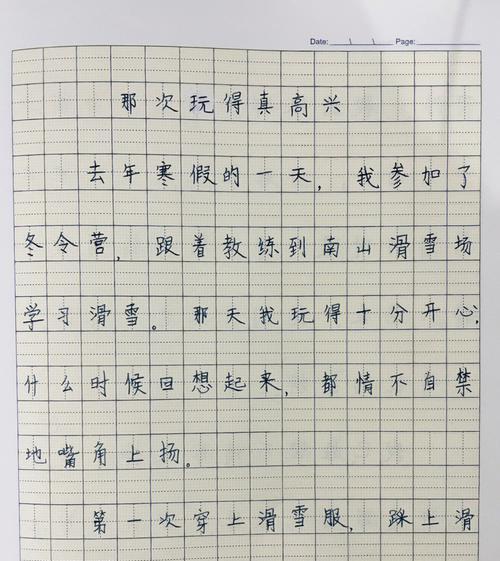 Date: \ \ Page:
那次玩得真高兴
去年寒假的一天，我参加了
冬令营，跟着教练到南山滑雪场
学习滑雪。那天我玩得十分开心，
什么时候回想起来，都情不自禁
地嘴角上扬。
第一次穿上滑雪服，踩上滑